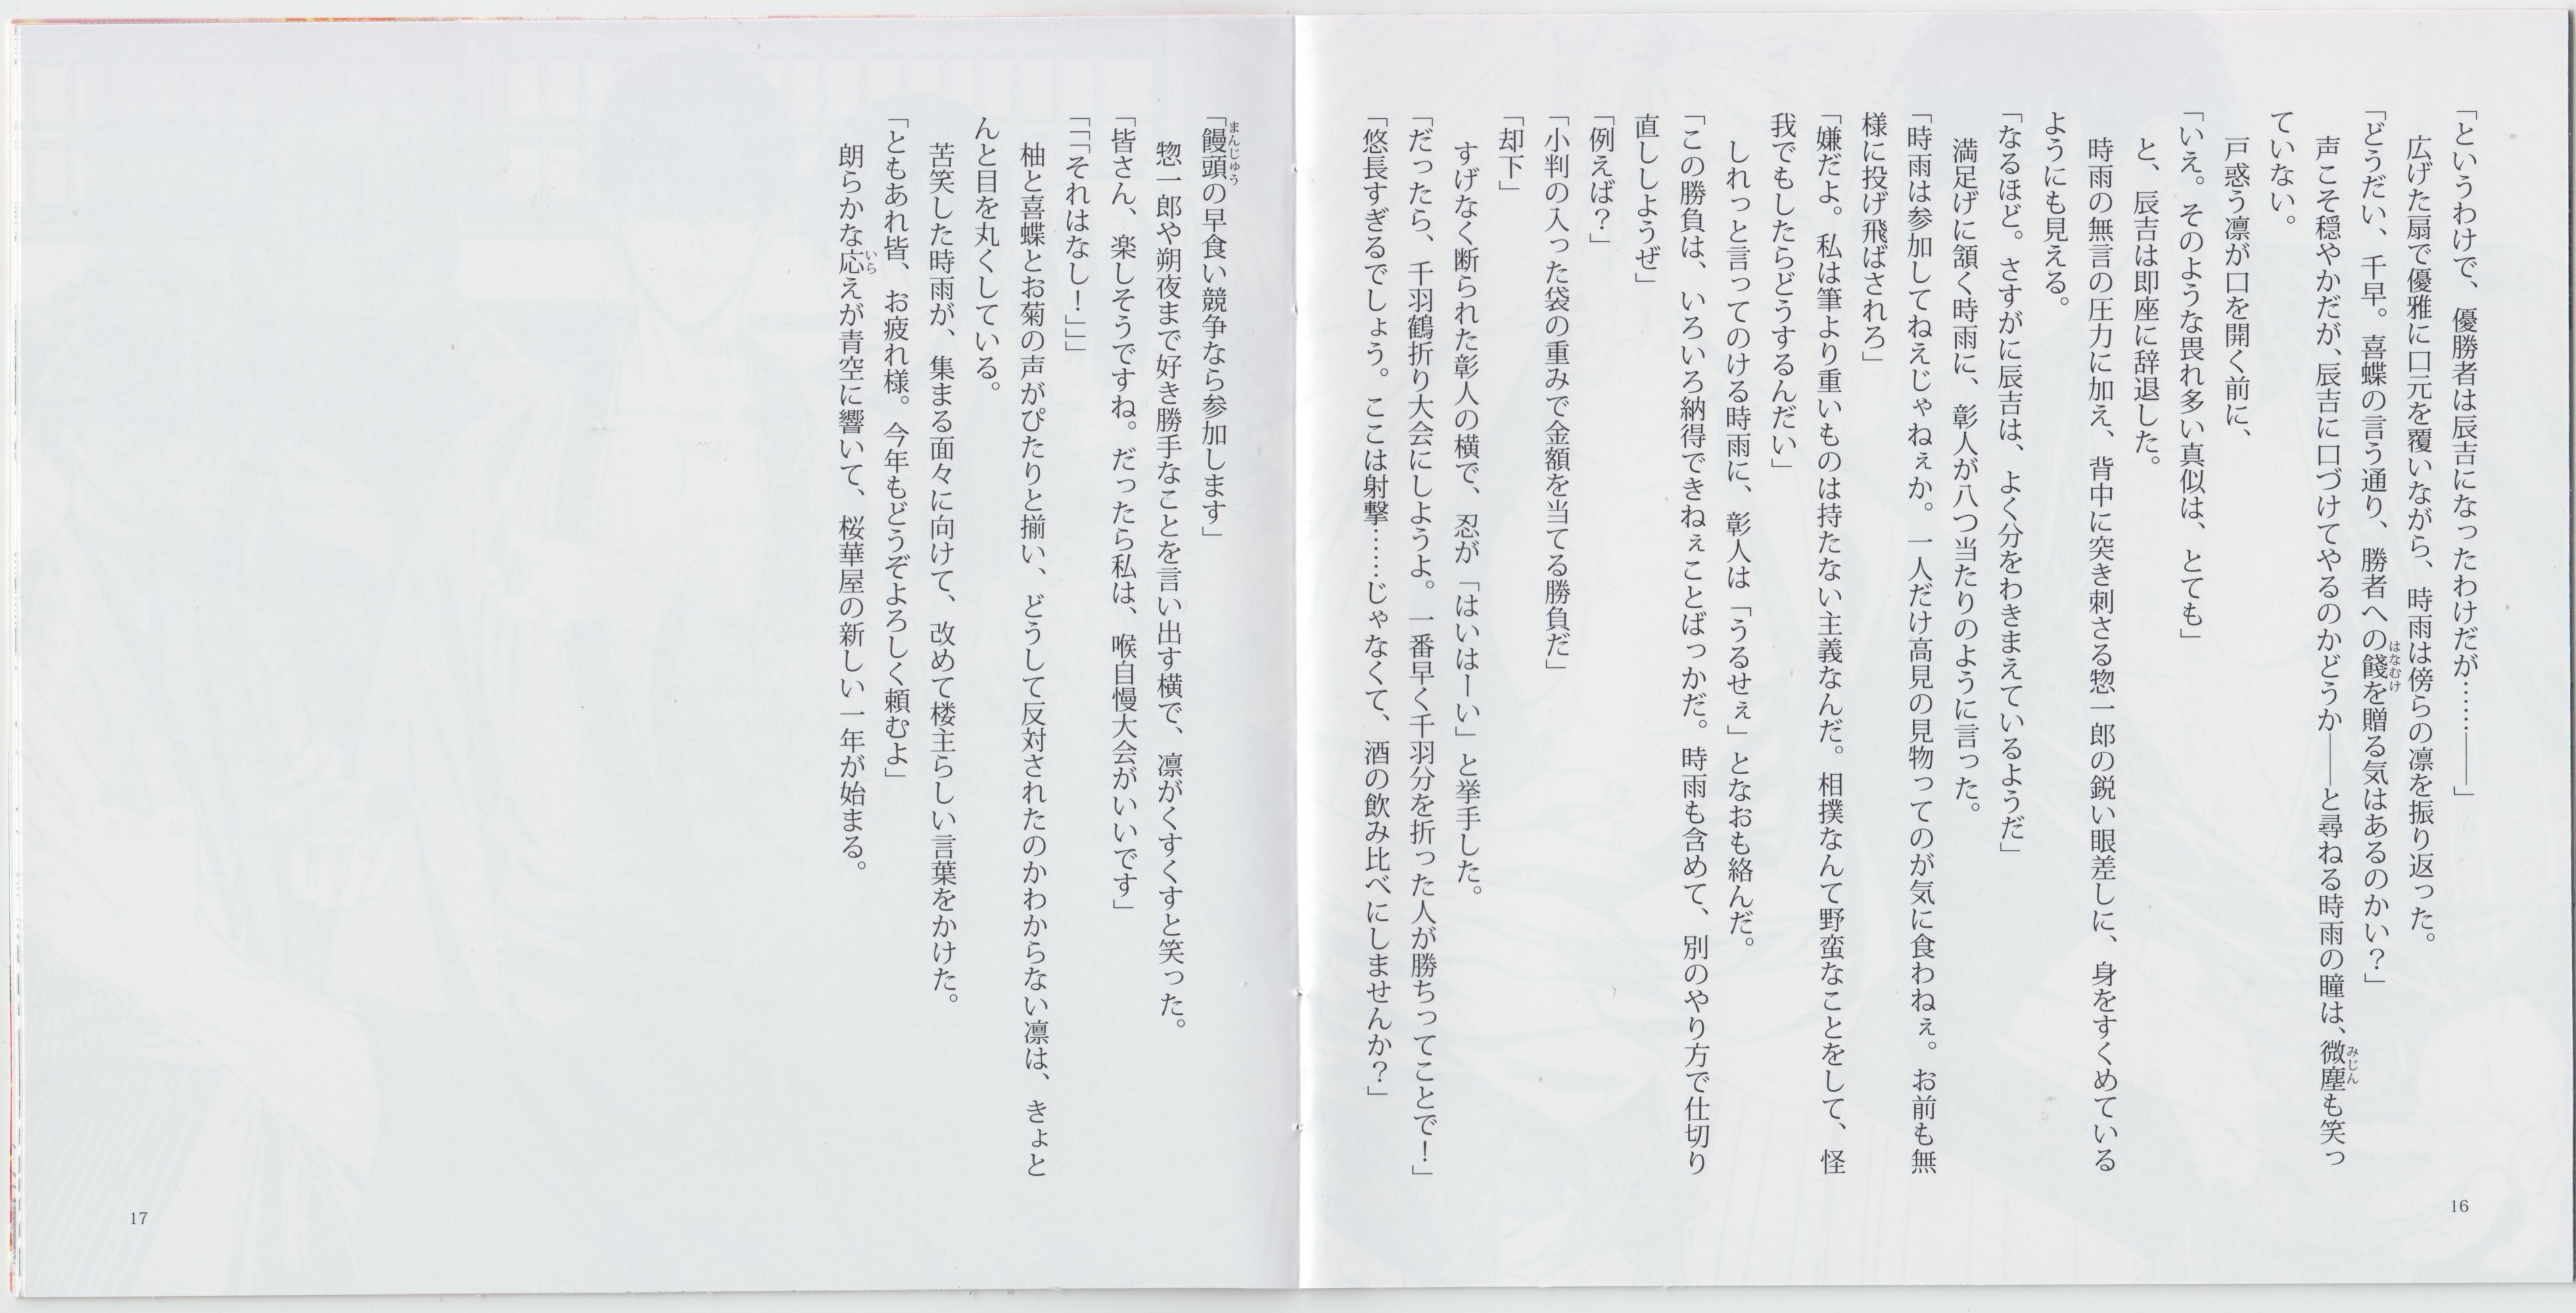 「というわけで、優勝者は辰吉になったわけだが……――」
広げた扇で優雅に口元を覆いながら、時雨は傍らの凛を振り返った。
「どうだい、千早。喜蝶の言う通り、勝者への餞を贈る気はあるのかい？」
声こそ穏やかだが、辰吉に口づけてやるのかどうか――と尋ねる時雨の瞳は、微塵も笑っ
ていない。
戸惑う凛が口を開く前に、
「いえ。そのような畏れ多い真似は、とても」
と、辰吉は即座に辞退した。
時雨の無言の圧力に加え、背中に突き刺さる惣一郎の鋭い眼差しに、身をすくめている
ようにも見える。
「なるほど。さすがに辰吉は、よく分をわきまえているようだ」
満足げに頷く時雨に、彰人が八つ当たりのように言った。
「時雨は参加してねえじゃねぇか。一人だけ高見の見物ってのが気に食わねぇ。お前も無
様に投げ飛ばされろ」
「嫌だよ。私は筆より重いものは持たない主義なんだ。相撲なんて野蛮なことをして、怪
我でもしたらどうするんだい」
しれっと言ってのける時雨に、彰人は「うるせぇ」となおも絡んだ。
「この勝負は、いろいろ納得できねぇことばっかだ。時雨も含めて、別のやり方で仕切り
直ししようぜ」
「例えば？」
「小判の入った袋の重みで金額を当てる勝負だ」
「却下」
すげなく断られた彰人の横で、忍が「はいはーい」と挙手した。
「だったら、千羽鶴折り大会にしようよ。一番早く千羽分を折った人が勝ちってことで！」
「悠長すぎるでしょう。ここは射撃……じゃなくて、酒の飲み比べにしませんか？」
16
「饅頭の早食い競争なら参加します」
惣一郎や朔夜まで好き勝手なことを言い出す横で、凛がくすくすと笑った。
「皆さん、楽しそうですね。だったら私は、喉自慢大会がいいです」
「「「それはなし！」」」
柚と喜蝶とお菊の声がぴたりと揃い、どうして反対されたのかわからない凛は、きょと
んと目を丸くしている。
苦笑した時雨が、集まる面々に向けて、改めて楼主らしい言葉をかけた。
「ともあれ皆、お疲れ様。今年もどうぞよろしく頼むよ」
朗らかな応えが青空に響いて、桜華屋の新しい一年が始まる。
17
はなむけ
みじん
まんじゅう
いら